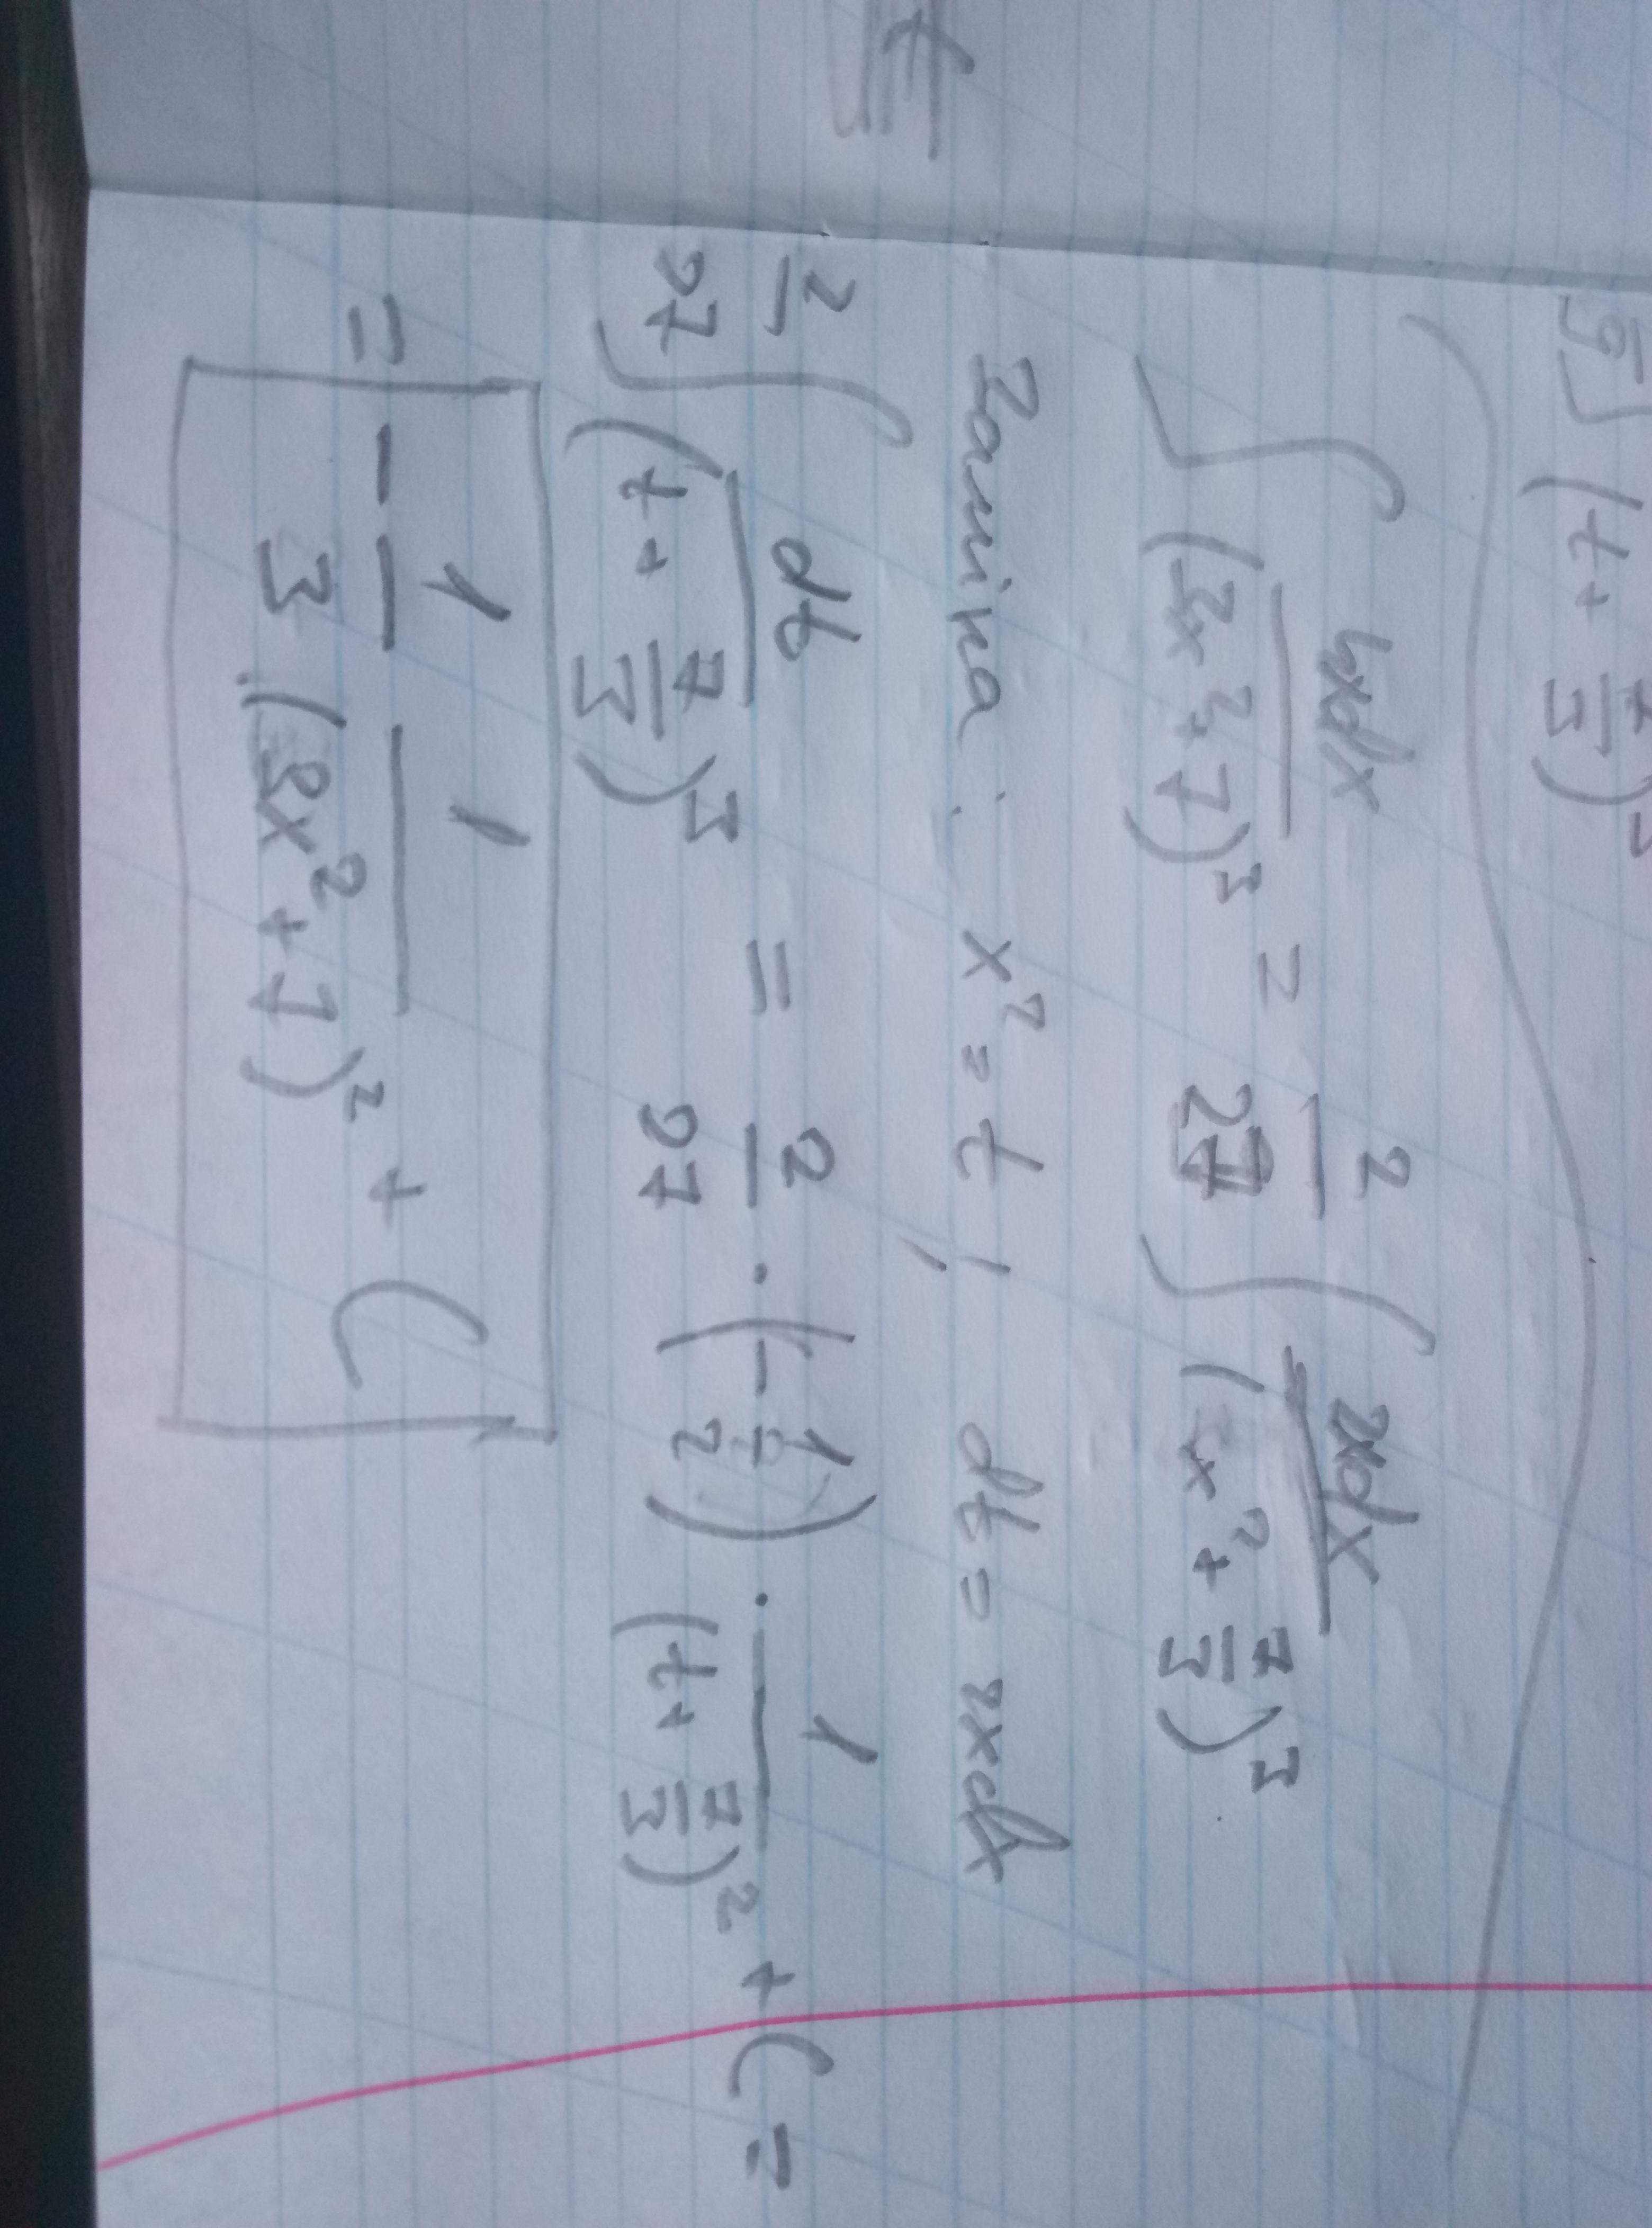 t
5∫ (t + 7/3)³
∫ 4xdx/(3x²+7)³ = 2/27 ∫ 2xdx/(x² + 7/3)³
Заміна: x² = t ; dt = 2xdx
2/27 ∫ dt/(t + 7/3)³ = 2/27 · (-1/2) · 1/(t + 7/3)² + C =
= -1/3 · 1/(3x² + 7)² + C